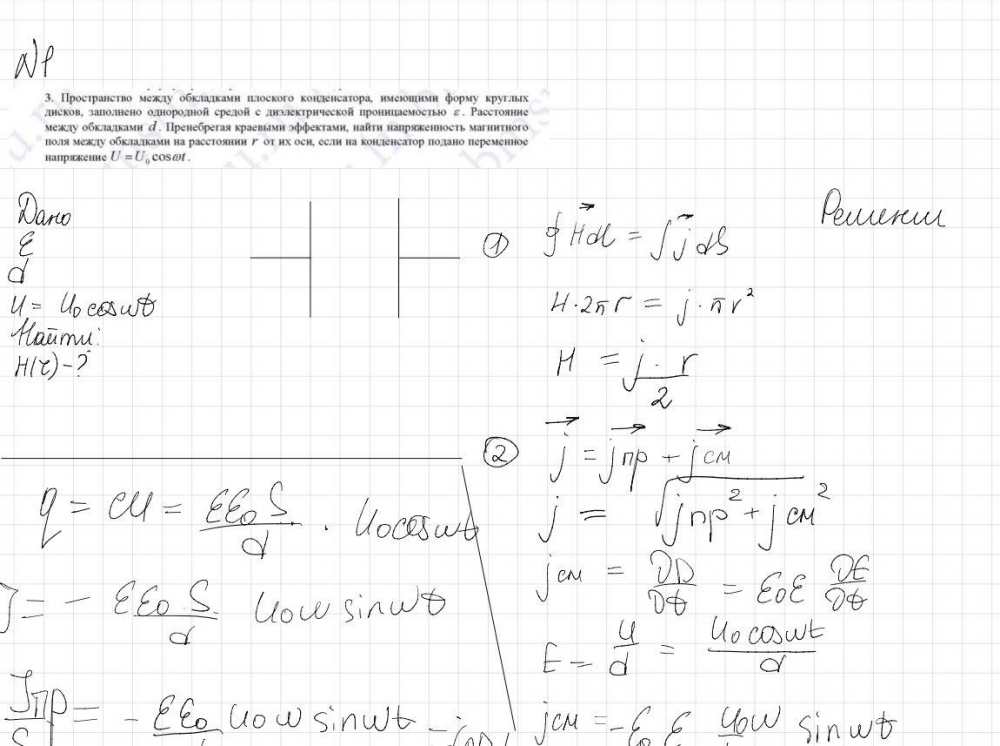 №1
3. Пространство между обкладками плоского конденсатора, имеющими форму круглых
дисков, заполнено однородной средой с диэлектрической проницаемостью ε. Расстояние
между обкладками d. Пренебрегая краевыми эффектами, найти напряженность магнитного
поля между обкладками на расстоянии r от их оси, если на конденсатор подано переменное
напряжение U = U₀ cos ωt.
Дано
ε
d
U = U₀ cos ωt
Найти:
H(r) - ?
Решении
① ∮ H⃗ dl = ∫ j⃗ dS
H · 2πr = j · πr²
H = j · r / 2
② j⃗ = j⃗пр + j⃗см
j = √(jпр² + jсм²)
jсм = ∂D/∂t = ε₀ε ∂E/∂t
E = U/d = U₀ cos ωt / d
jсм = -ε₀ε U₀ω sin ωt
q = CU = εε₀S/d · U₀ cos ωt
J = - εε₀S/d U₀ω sin ωt
Jпр/S = - εε₀ U₀ω sin ωt